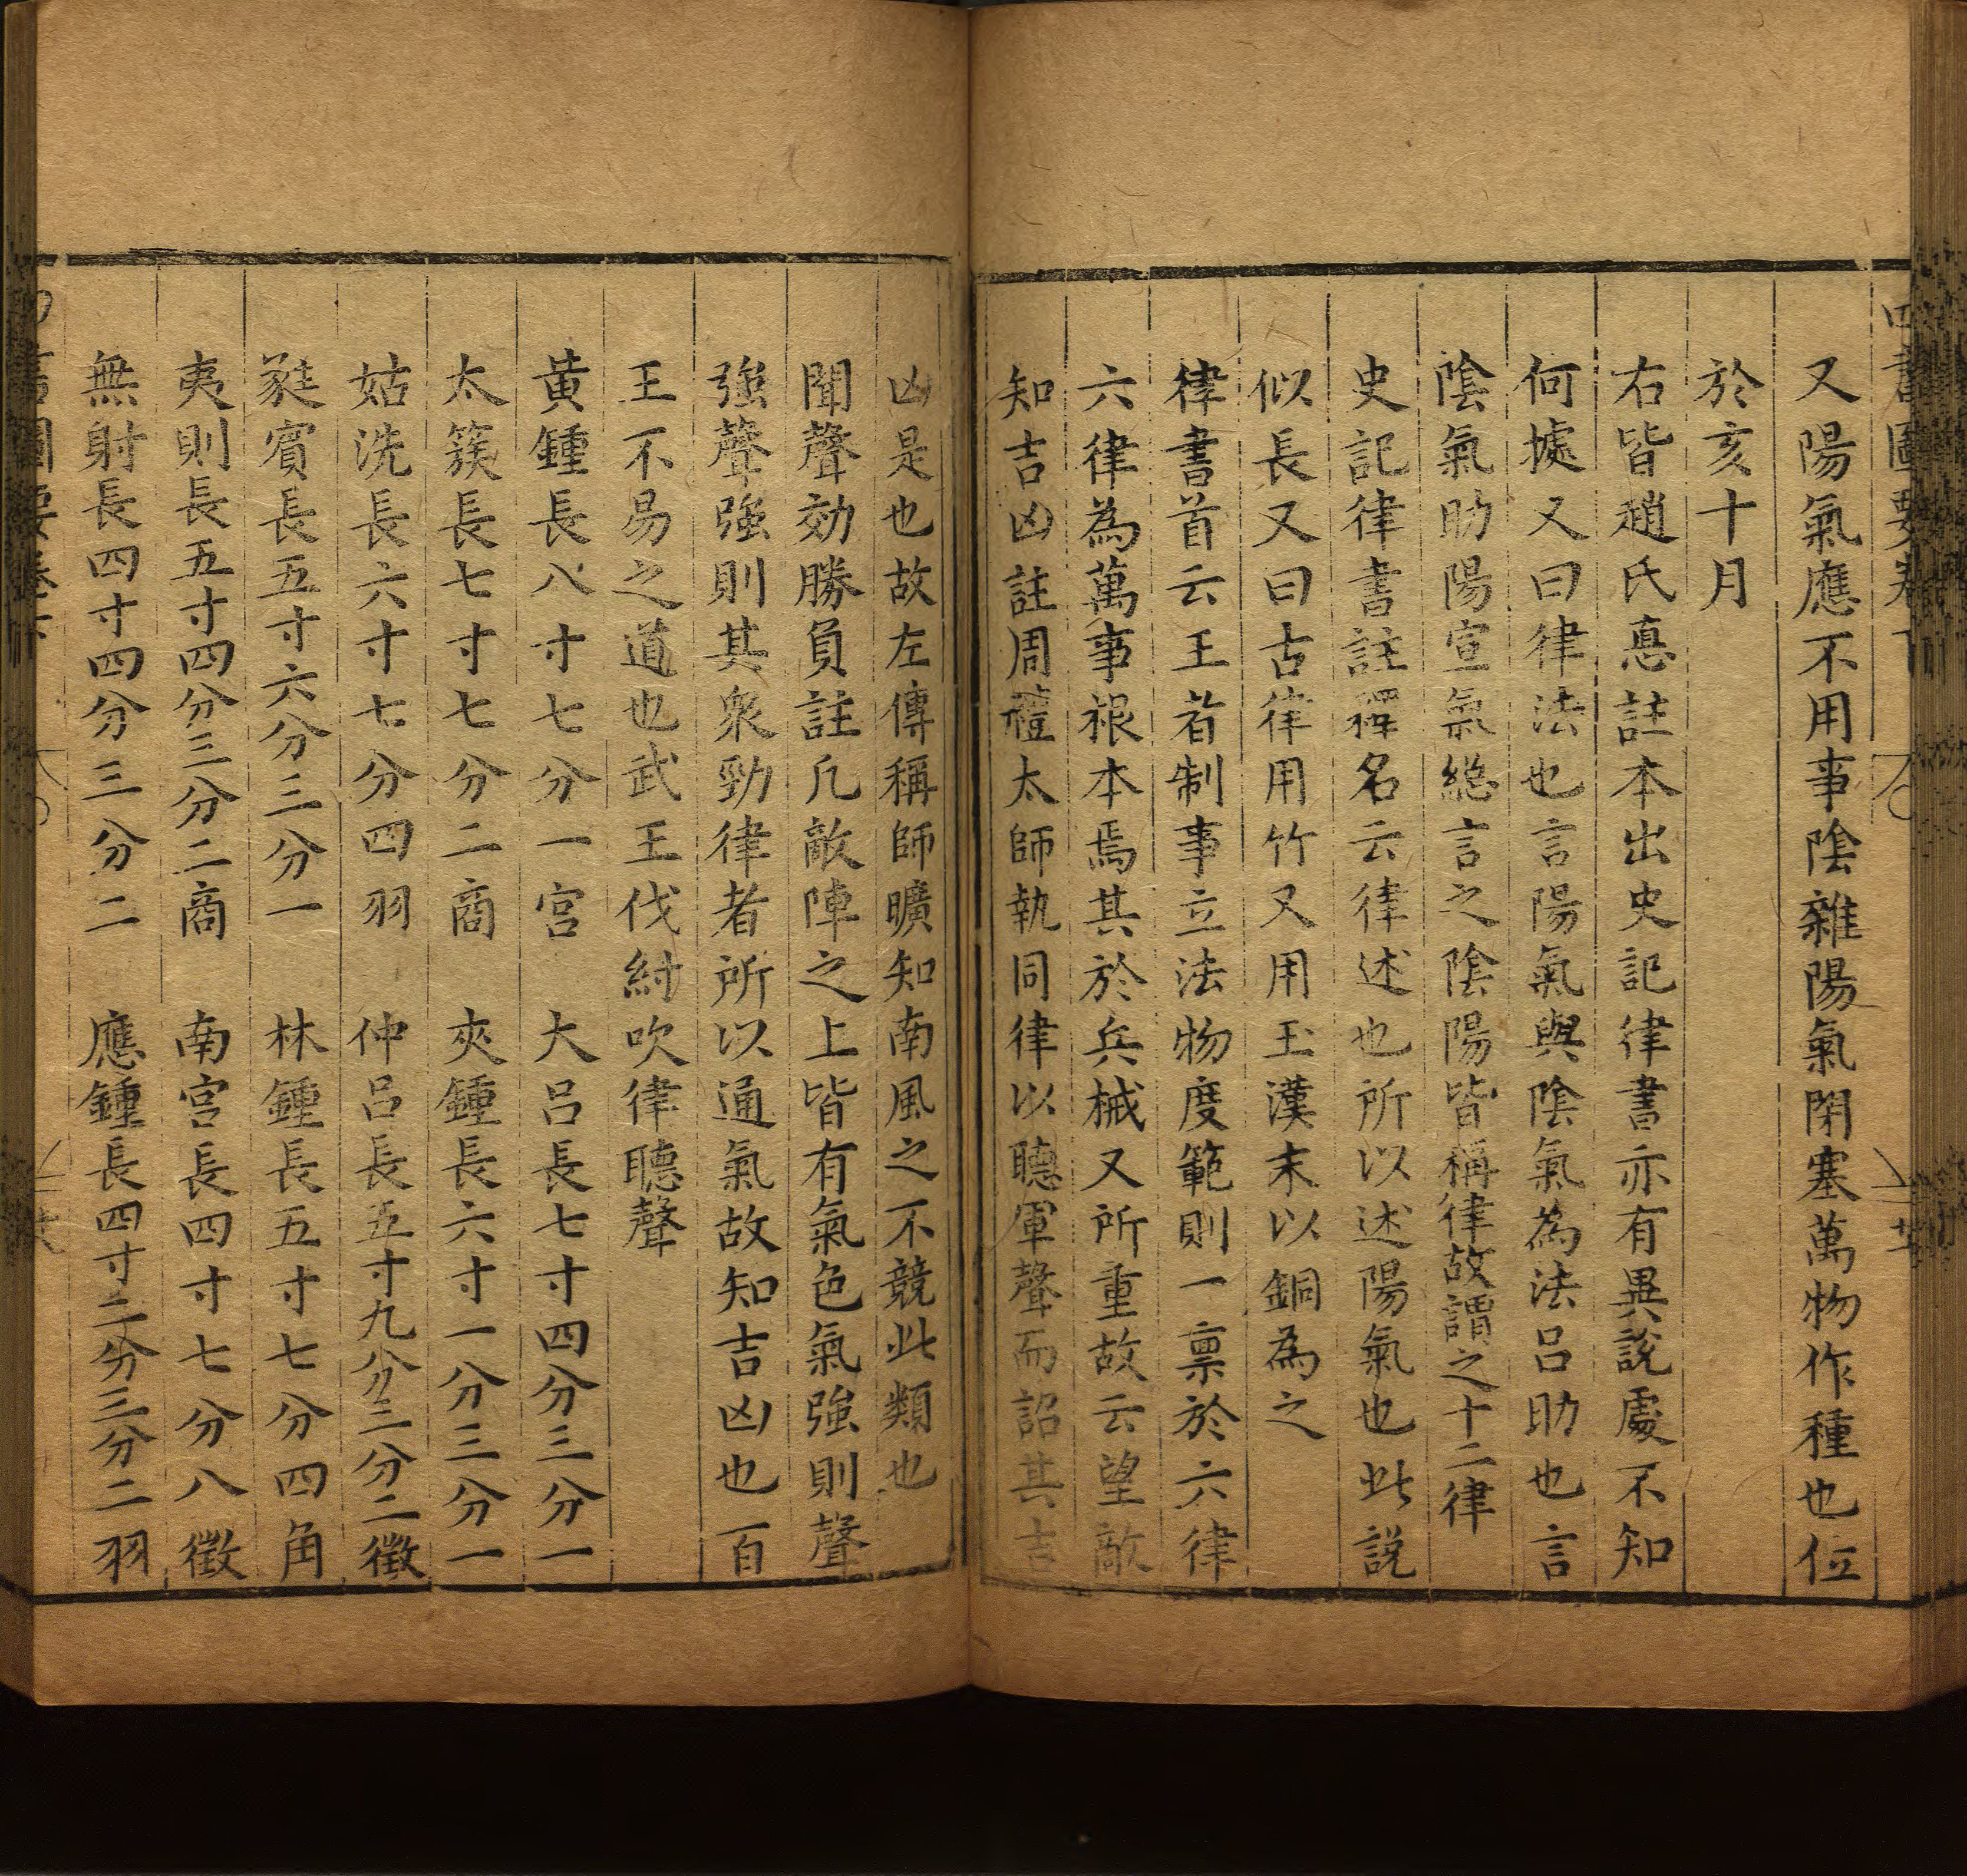 四書圖要卷下
又陽氣應不用事陰雜陽氣閉塞萬物作種也位
於亥十月
右皆趙氏悳註本出史記律書亦有異說處不知
何㨿又曰律法也言陽氣與陰氣為法呂助也言
陰氣助陽宣氣総言之陰陽皆稱律故謂之十二律
史記律書註釋名云律述也所以述陽氣也此說
似長又曰古律用竹又用玉漢末以銅為之
律書首云王者制事立法物度範則一禀於六律
六律為萬事根本焉其於兵械又所重故云望敵
知吉凶註周禮太師執同律以聽軍聲而詔其吉
凶是也故左傳稱師曠知南風之不競此類也
聞聲効勝負註凡敵陣之上皆有氣色氣強則聲
強聲強則其衆勁律者所以通氣故知吉凶也百
王不易之道也武王伐紂吹律聽聲
黃鍾長八寸七分一宮　大呂長七寸四分三分一
太簇長七寸七分二商　夾鍾長六寸一分三分一
姑洗長六寸七分四羽　仲呂長五寸九分三分二徵
蕤賓長五寸六分三分一　林鍾長五寸七分四角
夷則長五寸四分三分二商　南宮長四寸七分八徵
無射長四寸四分三分二　應鍾長四寸二分三分二羽